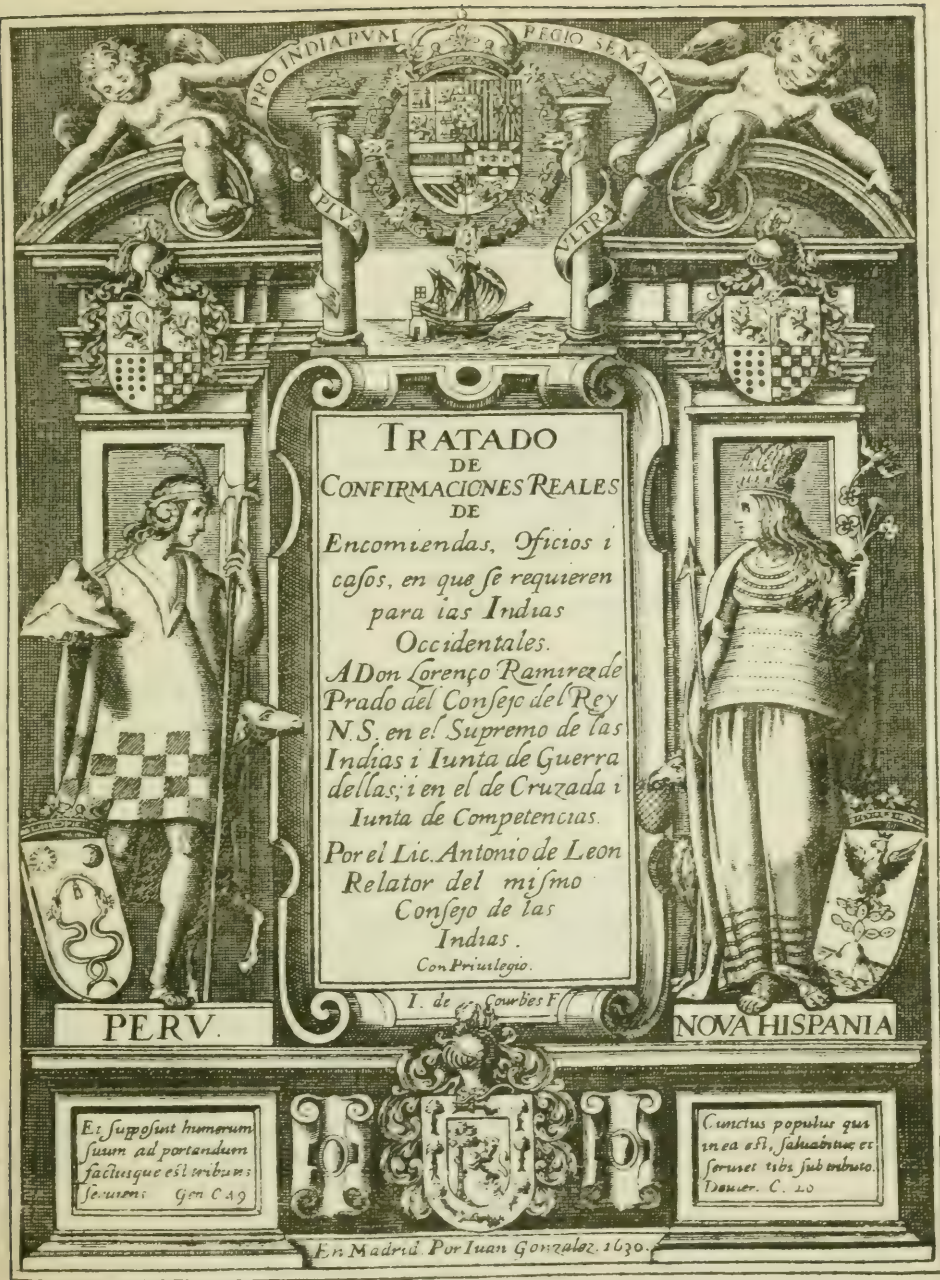 PRO INDIARVM REGIO SENATV
PLVS VLTRA
TRATADO
DE
CONFIRMACIONES REALES
DE
Encomiendas, Oficios i
casos, en que se requieren
para las Indias
Occidentales.
A Don Lorenço Ramirez de
Prado del Consejo del Rey
N.S. en el Supremo de las
Indias i Iunta de Guerra
dellas; i en el de Cruzada i
Iunta de Competencias.
Por el Lic. Antonio de Leon
Relator del mismo
Consejo de las
Indias.
Con Priuilegio.
I. de Courbes F
PERV.
NOVA HISPANIA
Et supposuit humerum
suum ad portandum
factusque est tributis
seruiens Gen C 49
Cunctus populus qui
in ea est, saluabitur et
seruiet tibi sub tributo.
Deuter. C. 20
En Madrid. Por Iuan Gonzalez. 1630.